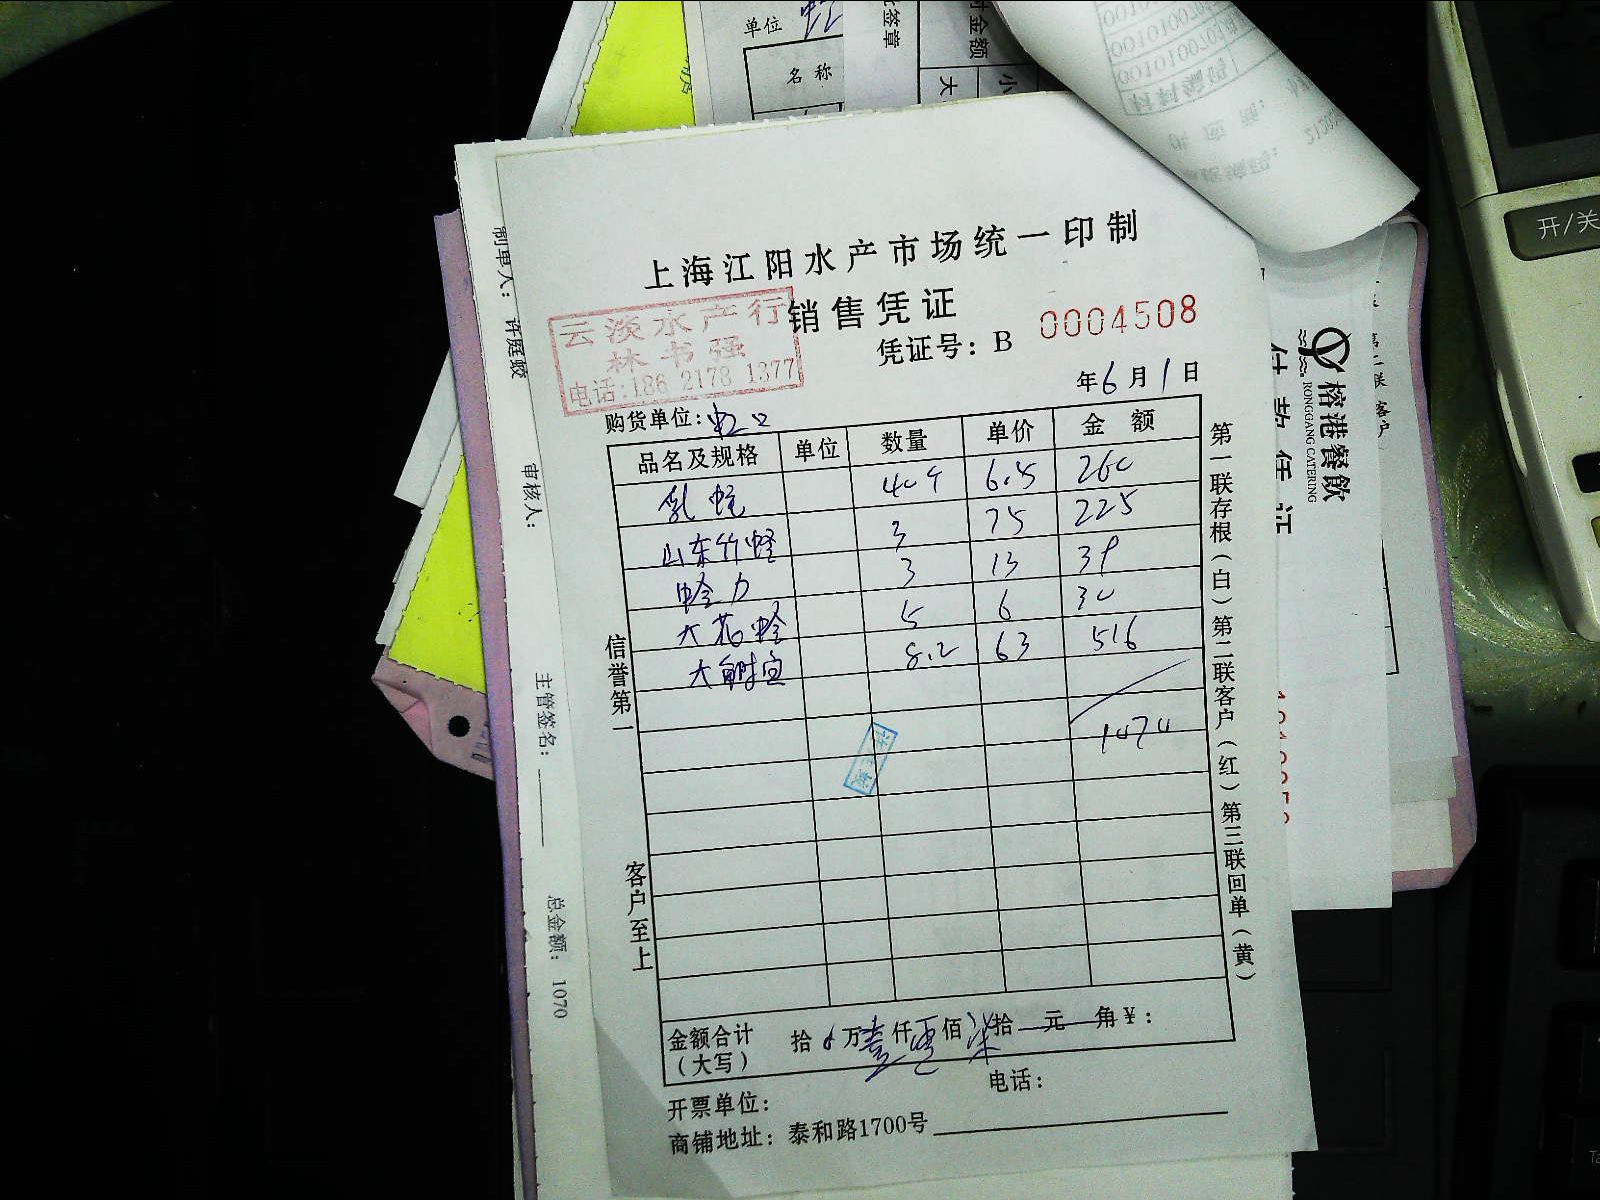 单位
名称
签章
金额
大
小
开/关
上海江阳水产市场统一印制
销售凭证
云淡水产行
林书强
电话:186 2178 1377
凭证号:B 0004508
年6月1日
购货单位:虹口
品名及规格 单位 数量 单价 金额
乳蛏 40个 6.5 260
山东竹蛏 3 75 225
蛤力 3 13 39
大花蛤 5 6 30
大 8.2 63 516
1070
金额合计(大写) 拾 万壹仟零佰柒拾 元 角¥:
开票单位: 电话:
商铺地址: 泰和路1700号
信誉第一
客户至上
第一联存根(白) 第二联客户(红) 第三联回单(黄)
制单人: 许庭蛟
审核人:
主管签名:
总金额: 1070
榕港餐飲
RONGGANG CATERING